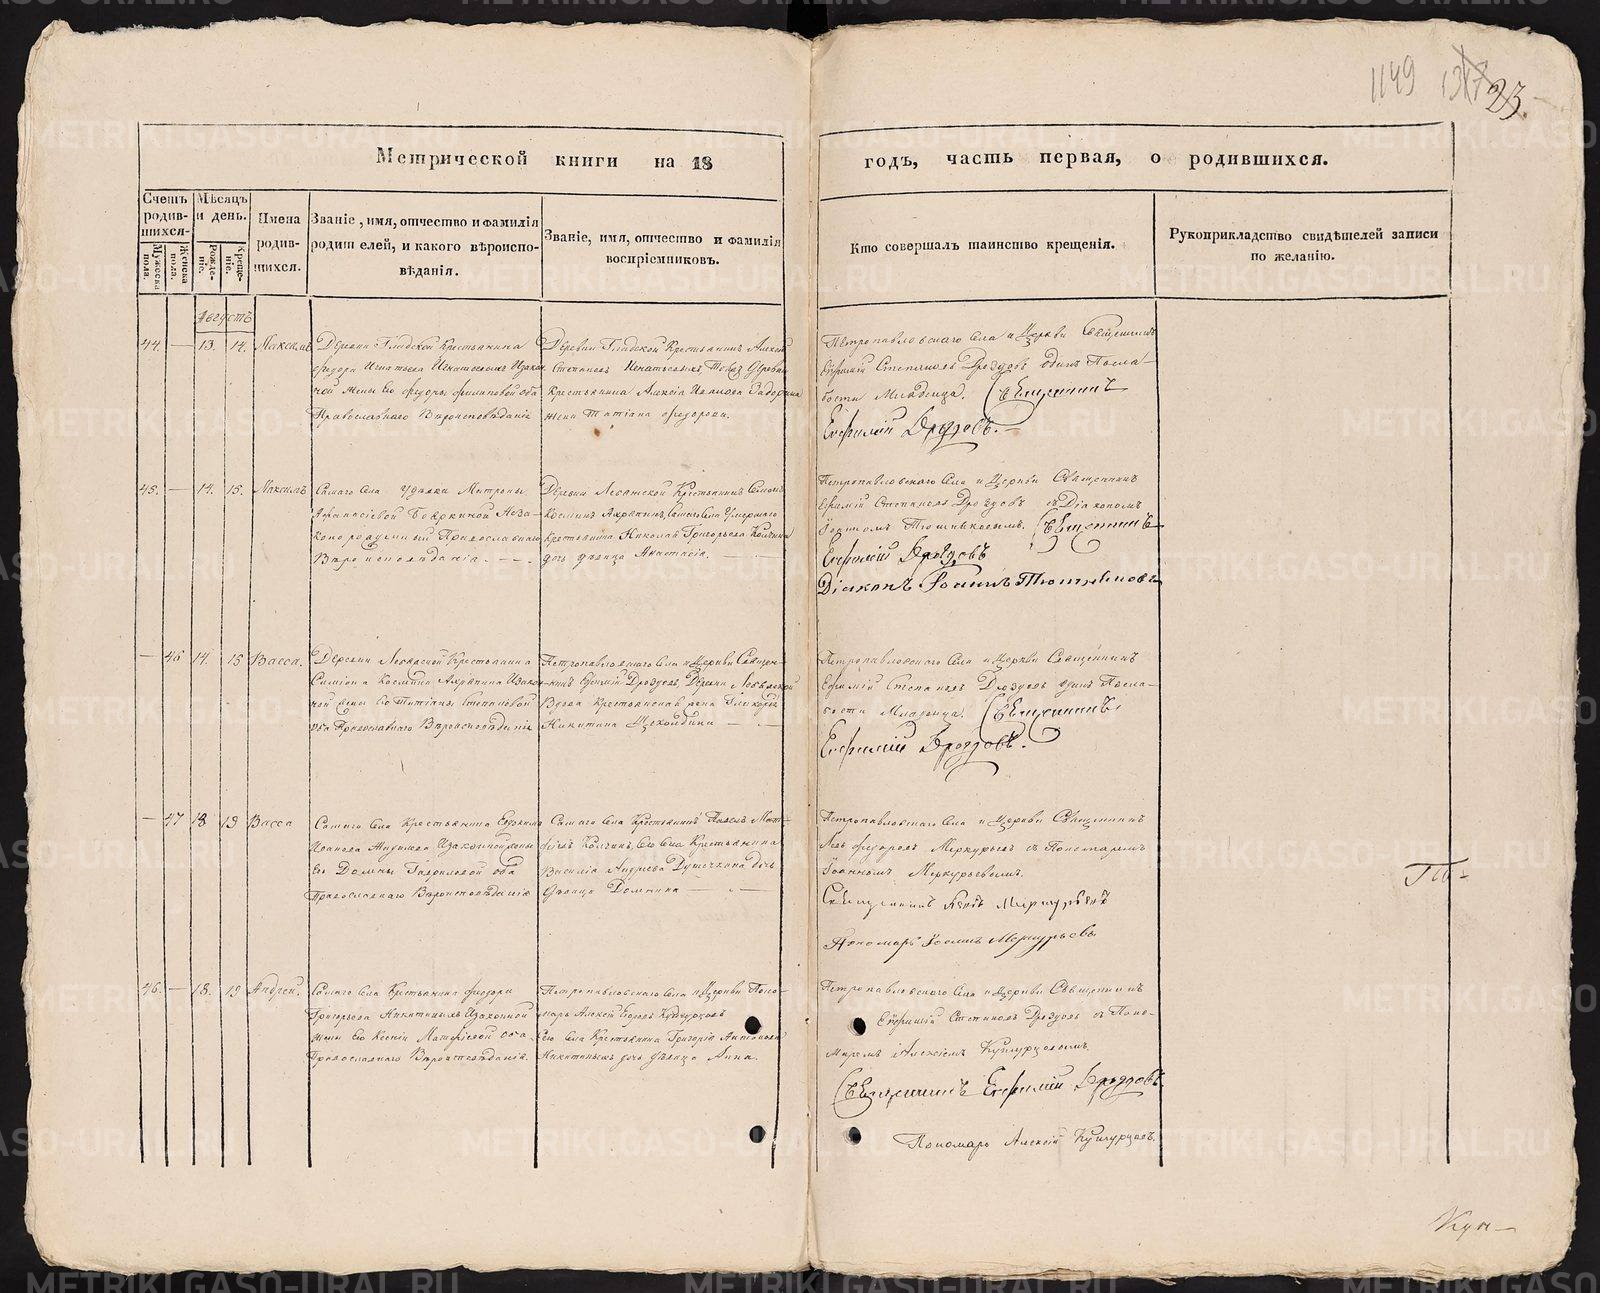 1149
23.
Метрической книги на 18
годъ, часть первая, о родившихся.
Счетъ родив-шихся.
Мужеска пола.
Женска пола.
Мѣсяцъ и день.
Рожде-ніе.
Креще-ніе.
Имена родив-шихся.
Званіе, имя, отчество и фамилія
родителей, и какого вѣроиспо-
вѣданія.
Званіе, имя, отчество и фамилія
воспріемниковъ.
Кто совершалъ таинство крещенія.
Рукоприкладство свидѣтелей записи
по желанію.
Августъ
44. — 13. 14. Максимъ
Деревни Крестьянина
Феодора Игнатьева
ной жены Его Феодоры Филиповой оба
Православнаго Вѣроисповѣданія
Деревни Крестьянинъ Алексѣй
Степановъ Игнатьевыхъ Той Деревни
Крестьянина Алексія Иванова
жена Татіана Феодорова.
Петропавловскаго Села и Церкви Священникъ
Евфимій Стефановъ Дроздовъ одинъ По сла-
бости Младенца. Священникъ
Евфимій Дроздовъ.
45. — 14. 15. Максимъ
Самаго Села Матроны
Афанасіевой Бояркиной Неза-
конорожденный Православнаго
Вѣроисповѣданія
Деревни Крестьянинъ
Косминъ Села Умершаго
Крестьянина Николая Григорьева
дочь дѣвица Анастасія.
Петропавловскаго Села и Церкви Священникъ
Евфимій Стефановъ Дроздовъ съ Діакономъ
Іоанномъ Тюшняковымъ. Священникъ
Евфимій Дроздовъ
Діаконъ Іоаннъ Тюшняковъ
— 46 14. 15 Васса.
Деревни Крестьянина
Симіона Космина Изакон-
ной жены Его Татіаны Степановой
оба Православнаго Вѣроисповѣданія
Петропавловскаго Села и Церкви Священ-
никъ Евфимій Дроздовъ, Деревни
Вдова Крестьянская жена Гликерія
Никитина
Петропавловскаго Села и Церкви Священникъ
Евфимій Стефановъ Дроздовъ одинъ По сла-
бости Младенца. Священникъ
Евфимій Дроздовъ.
— 47 18 19 Васса
Самаго Села Крестьянина Евдокима
Иванова Изаконной жены
Его Домны Гавриловой оба
Православнаго Вѣроисповѣданія
Самаго Села Крестьянинъ Павелъ
Его Села Крестьянина
Василія Андреева дочь
дѣвица Домнина
Петропавловскаго Села и Церкви Священникъ
Левъ Феодоровъ Меркурьевъ съ Пономаремъ
Іоанномъ Меркурьевымъ.
Священникъ Левъ Меркурьевъ
Пономарь Іоаннъ Меркурьевъ
46. — 18. 19 Андрей.
Самаго Села Крестьянина Феодора
Григорьева Никитиныхъ Изаконной
жены Его Ксеніи Матфіевой оба
Православнаго Вѣроисповѣданія.
Петропавловскаго Села и Церкви Поно-
марь Алексій Кунгурцовъ
Его Села Крестьянина Григорія Антоньева
Никитиныхъ дочь дѣвица Анна.
Петропавловскаго Села и Церкви Священникъ
Евфимій Стефановъ Дроздовъ съ Поно-
маремъ Алексіемъ Кунгурцовымъ.
Священникъ Евфимій Дроздовъ
Пономарь Алексій Кунгурцовъ.
METRIKI.GASO-URAL.RU